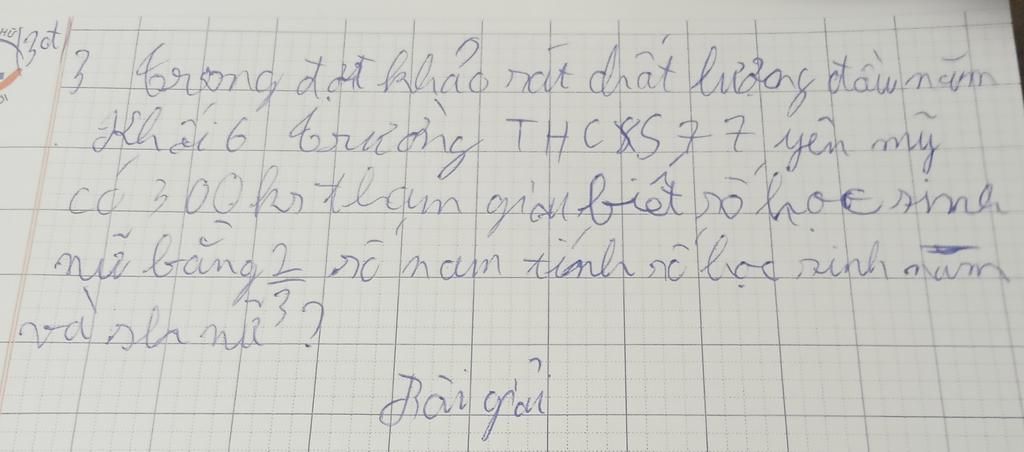 3đt
3 trong đợt khảo sát chất lượng đầu năm
Khối 6 trường THCS 77 yên mỹ
có 300 hs tham gia biết số học sinh
nữ bằng 2/3 số nam tính số học sinh nam
và sh nữ?
Bài giải